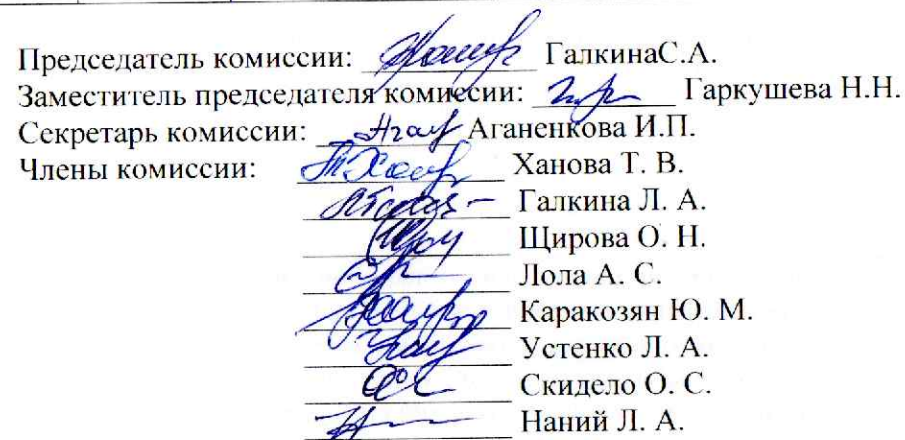 Председатель комиссии: ГалкинаС.А.
Заместитель председателя комиссии: Гаркушева Н.Н.
Секретарь комиссии: Аганенкова И.П.
Члены комиссии: Ханова Т. В.
Галкина Л. А.
Щирова О. Н.
Лола А. С.
Каракозян Ю. М.
Устенко Л. А.
Скидело О. С.
Наний Л. А.